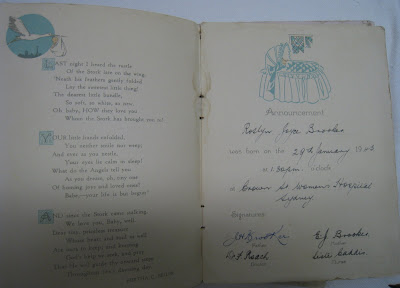 LAST night I heard the rustle
Of the Stork late on the wing,
'Neath his feathers gently folded
Lay the sweetest little thing!
The dearest little bundle,
So soft, so white, so pure,
Oh baby, HOW dear
Whom the Stork has brought to
YOUR little hands unfolded,
Your mother smile our
And now as you smile,
Your eyes lie calm in sleep!
What do the Angels tell you
As you dream, oh, tiny one
Of kissing joys and loved ones?
Baby—your life is but begun!
AND since the Stork came calling,
We love you, Baby, well.
Dear tiny, priceless treasure
Whose heart, and soul so well
Are ours to keep and
God's help to seek, and pray
That He will guide the
Throughout
Announcement
Roslyn Joyce Brooker
was born on the 29th January
at 1.30pm. o'clock
in Crown St Women's Hospital
Sydney
Signatures
E J Brooker
Father Mother
Roach
Doctor Nurse